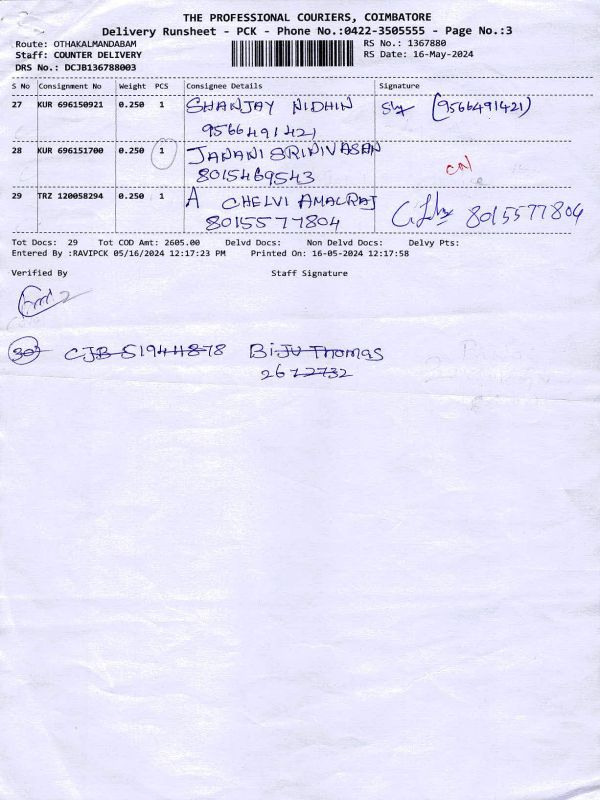 THE PROFESSIONAL COURIERS, COIMBATORE
Delivery Runsheet - PCK - Phone No.:0422-3505555 - Page No.:3
Route: OTHAKALMANDABAM RS No.: 1367880
Staff: COUNTER DELIVERY RS Date: 16-May-2024
DRS No.: DCJB136788003
S No Consignment No Weight PCS Consignee Details Signature
27 KUR 696150921 0.250 1 SHANJAY NIDHIN (9566491421)
9566491421
28 KUR 696151700 0.250 1 JANANI SRINIVASAN
8015469543
29 TRZ 120058294 0.250 1 A CHELVI AMALRAJ 8015577804
8015577804
Tot Docs: 29 Tot COD Amt: 2605.00 Delvd Docs: Non Delvd Docs: Delvy Pts:
Entered By :RAVIPCK 05/16/2024 12:17:23 PM Printed On: 16-05-2024 12:17:58
Verified By Staff Signature
30 CJB 519441878 BIJU THOMAS
2672732